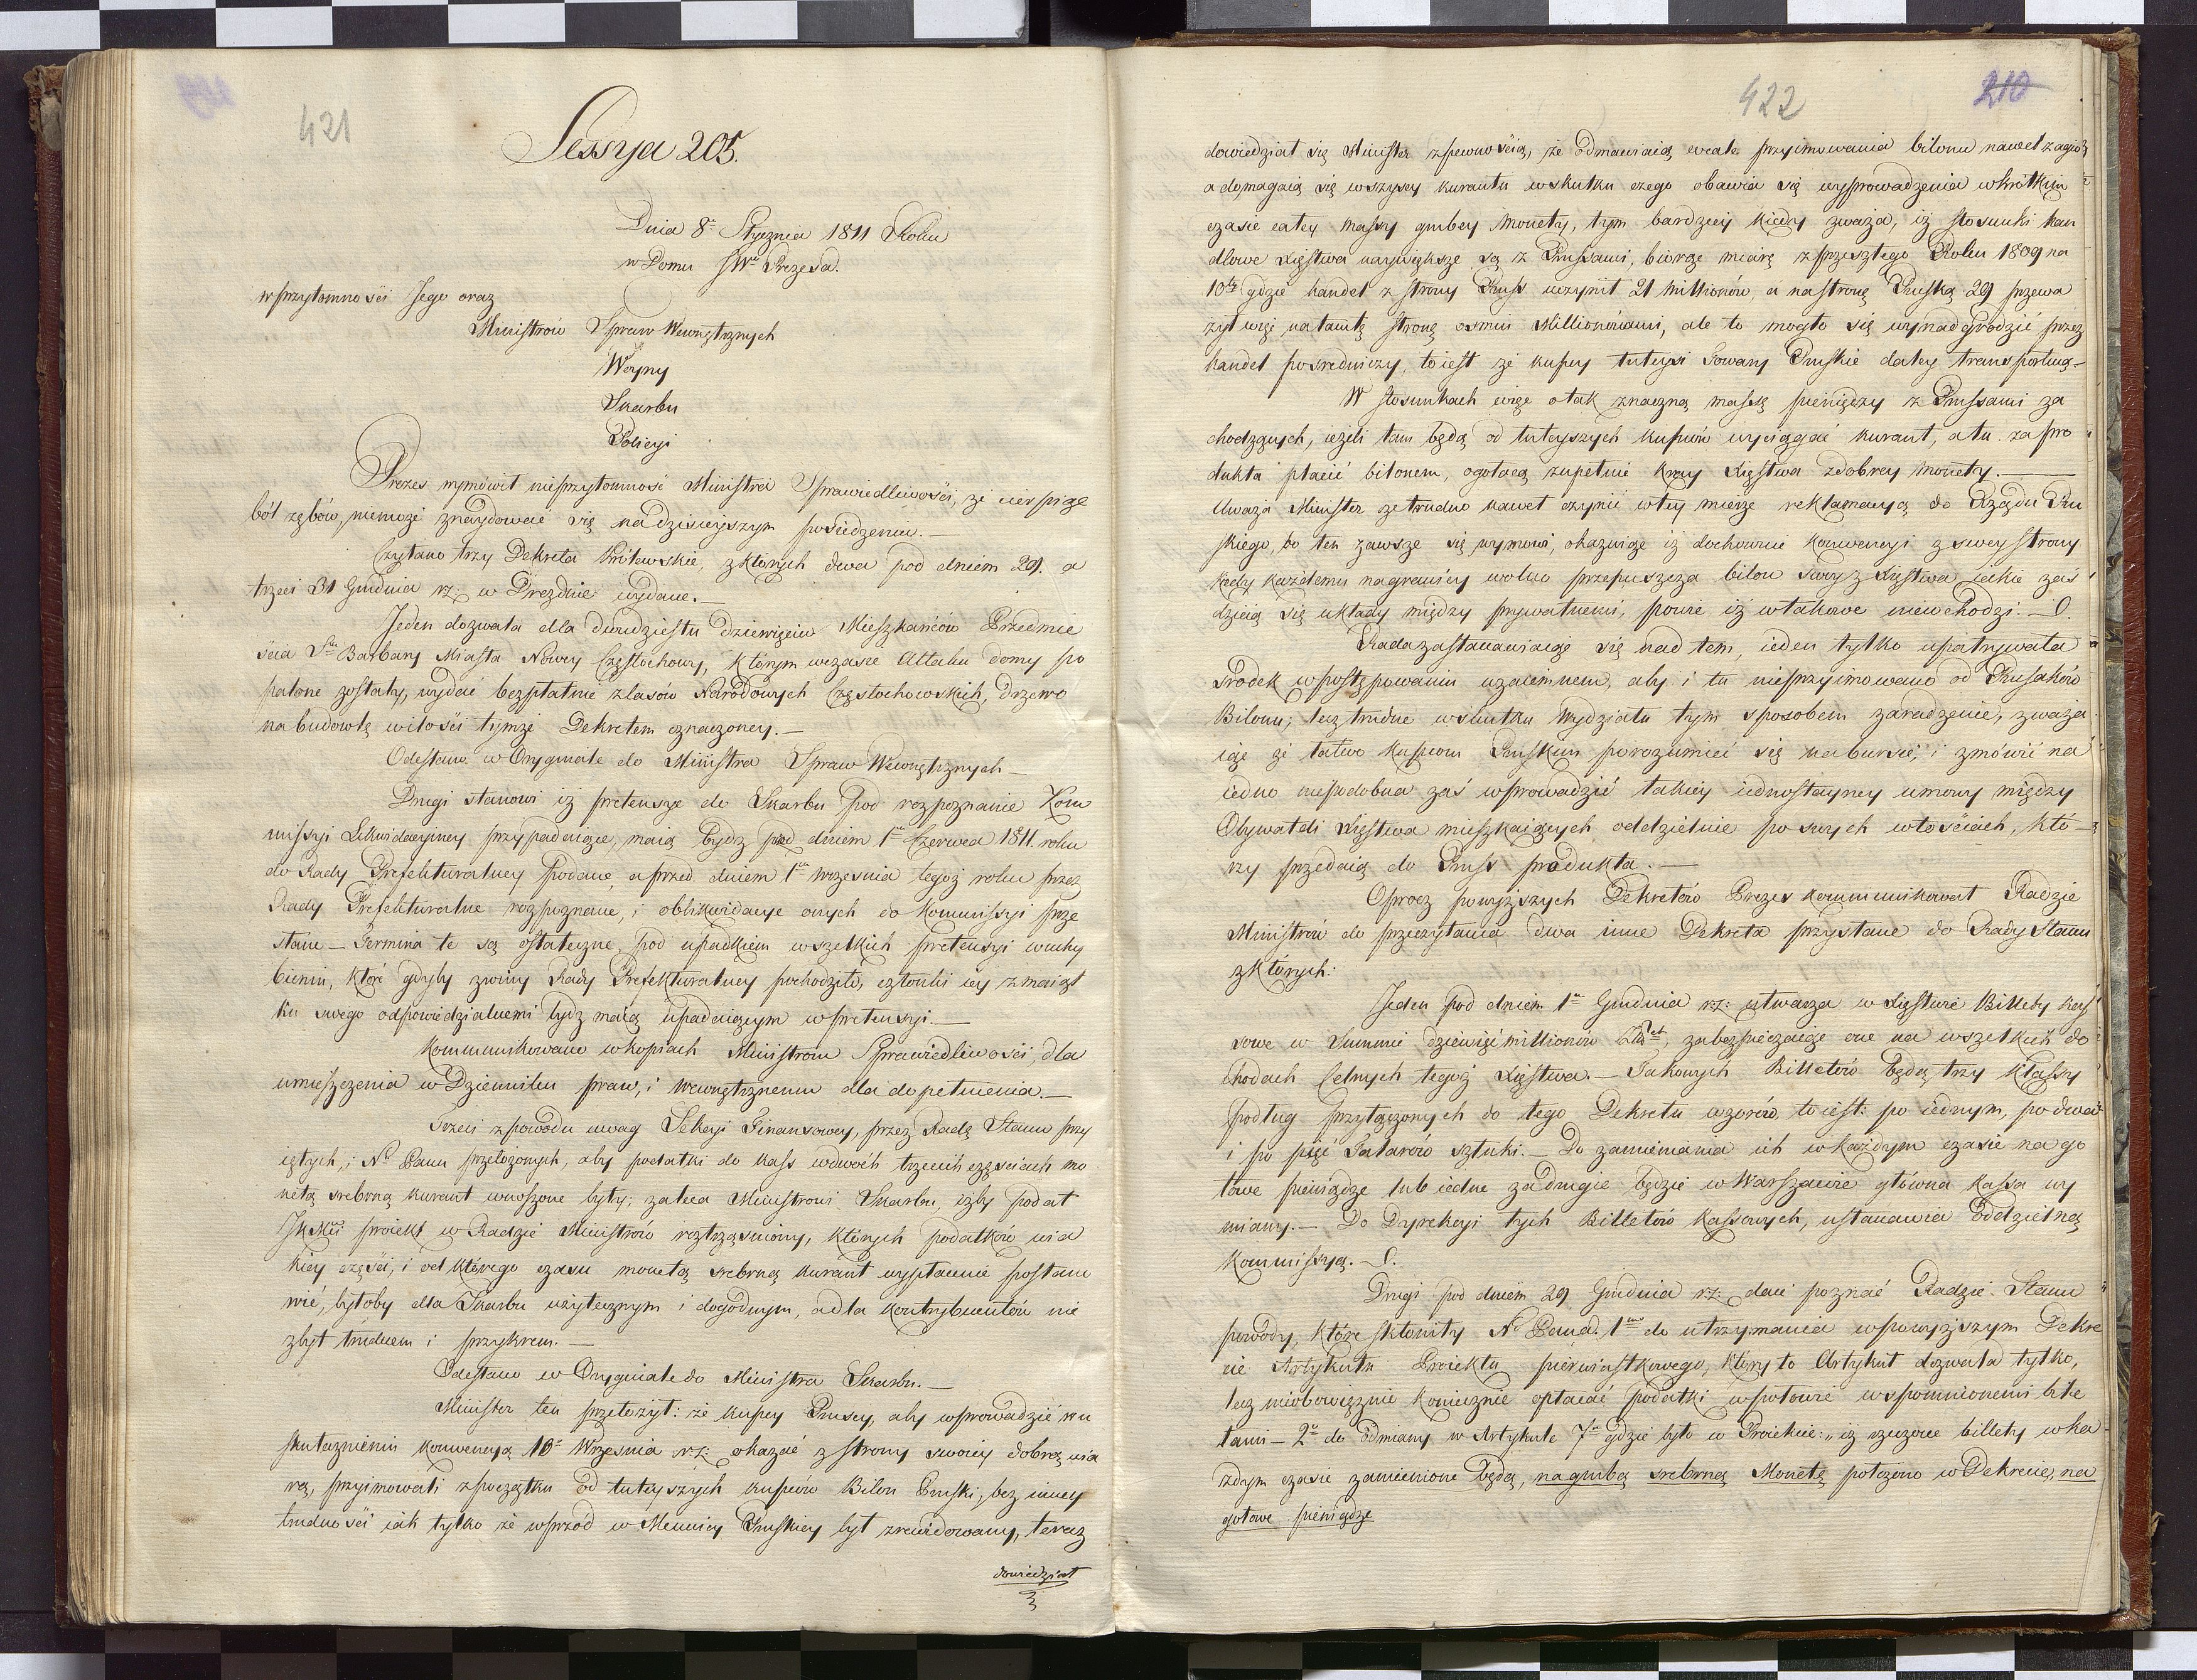 421
Sessya 205.
Dnia 8º Stycznia 1811 Roku
w Domu JWº Prezesa.
w przytomności Jego oraz
Ministrów Spraw Wewnętrznych
Woyny
Skarbu
Policyi
Prezes wymówił nieprzytomność Ministra Sprawiedliwości, że cierpiąc
ból zębów, niemoże znaydować się na dzisieyszym posiedzeniu.—
Czytano trzy Dekreta Królewskie, z których dwa pod dniem 29. a
trzeci 31 Grudnia r.z: w Dreznie wydane.—
Jeden dozwala dla dwudziestu dziewięciu Mieszkańców Przedmie
ścia Stey Barbary Miasta Nowey Częstochowy, którym wczasie Attaku domy po
palone zostały, wydać bezpłatnie z lasów Narodowych Częstochowskich, drzewo
na budowlę w ilości tymże Dekretem oznaczoney.—
Odesłano w Oryginale do Ministra Spraw Wewnętrznych—
Drugi stanowi iż pretensye do Skarbu pod rozpoznanie Kom
missyi Likwidacyiney przypadaiące, maią bydź przed dniem 1m Czerwca 1811. roku
do Rady Prefekturalney podane, a przed dniem 1m Września tegoż roku przez
Rady Prefekturalne rozpoznane, i oblikwidacye onych do Kommissyi prze
słane— Termina te są ostateczne, pod upadkiem wszelkich pretensyi w uchy
bieniu, które gdyby z winy Rady Prefekturalney pochodziło, członki iey z maiąt
ku swego odpowiedzialnemi bydź maią upadaiącym w pretensyi.—
Kommunikowano w kopiach Ministrom Sprawiedliwości, dla
umieszczenia w Dzienniku praw, i Wewnętrznemu dla dopełnienia.—
Trzeci z powodu uwag Sekcyi Finansowey, przez Radę Stanu przy
iętych, i Nº Panu przełożonych, aby podatki do kass w dwóch trzecich częściach mo
netą srebrną kurant wnoszone były; zaleca Ministrowi Skarbu, iżby podał
JKMci proiekt w Radzie Ministrów roztrząśniony, których podatków w ia
kiey części, i od którego czasu monetą srebrną kurant wypłacenie postano
wić, byłoby dla Skarbu użytecznym i dogodnym, a dla kontrybuentów nie
zbyt trudnem i przykrem.—
Odesłano w Oryginale do Ministra Skarbu.—
Minister ten przełożył: że kupcy Pruscy, aby wprowadzić w u
skutecznieniu konwencyą 10º Września r.z: okazać z strony swoiey dobrą wia
rę, przyimowali z początku od tuteyszych kupców Bilon Pruski, bez inney
trudności iak tylko że wprzód w Mennicy Pruskiey był zrewidowany, teraz
dowiedział
422
210
dowiedział się Minister z pewnością, że odmawiaią wcale przyimowania bilonu nawet z agio
a domagaią się wszyscy kurantu w skutku czego obawia się wyprowadzenia w krótkim
czasie całey massy grubey monety, tym bardziey kiedy zważa, iż stosunki han
dlowe Xięstwa naywiększe są z Prussami, biorąc miarę z przeszłego Roku 1809 na
10ty gdzie handel z strony Pruss uczynił 21 millionów, a na stronę Pruską 29 przewa
żył więc na tamtę stronę ośmiu Millionami, ale to mogło się wynadgrodzić przez
handel pośredniczy, to iest że kupcy tuteysi towary Pruskie daley transportuią—
W stosunkach więc o tak znaczną massę pieniędzy z Prussami za
chodzących, ieżeli tam będą od tuteyszych kupców wyciągać kurant, a tu za pro
dukta płacić bilonem, ogołocą zupełnie kray Xięstwa z dobrey monety.—
Uważa Minister że trudno nawet czynić w tey mierze reklamacyą do Rządu Pru
skiego, bo ten zawsze się wymówi, okazuiąc iż dochowuie konwencyi z swey strony
kiedy każdemu na granicy wolno przepuszcza bilon swóy z Xięstwa, iakie zaś
dzieią się układy między prywatnemi, powie iż w takowe niewchodzi.—
Rada zastanawiaiąc się nad tem, ieden tylko upatrywała
środek w postępowaniu wzaiemnem, aby i tu nieprzyimowano od Prusaków
Bilonu; lecz trudne w skutku tym sposobem zaradzenie, zważa
iąc że łatwo kupcom Pruskim porozumieć się na bursie, i zmówić na
iedno niepodobna zaś wprowadzić takiey iednostayney umowy między
Obywateli Xięstwa mieszkaiących oddzielnie po swych włościach, któ-
rzy przedaią do Pruss produkta.—
Oprócz powyższych Dekretów Prezes kommunikował Radzie
Ministrów do przeczytania dwa inne Dekreta przysłane do Rady Stanu
z których:
Jeden pod dniem 1m Grudnia r.z: utwarza w Xięstwie Billety kas
sowe w Summie dziewięć millionów zabezpieczaiąc one na wszelkich do
chodach Celnych tegoż Xięstwa.— Takowych Billetów będą trzy klassy
podług przyłączonych do tego Dekretu wzorów, to iest: po iednym, po dwa
i po pięć Talarów sztuki.— Do zamieniania ich w każdym czasie na go
towe pieniądze lub iedne za drugie będzie w Warszawie główna kassa wy
miany.— Do Dyrekcyi tych Billetów kassowych, ustanawia oddzielną
kommissyą.—
Drugi pod dniem 29 Grudnia r.z: daie poznać Radzie Stanu
powody, które skłoniły Nº Pana. 1mo do utrzymania w powyższym Dekre
cie Artykułu Proiektu pierwiastkowego, który to Artykuł dozwala tylko,
lecz nieobowięznie koniecznie opłacać podatki w połowie wspomnionemi bile
tami— 2º do odmiany w Artykule 7m gdzie było w Proiekcie: „iż rzeczone billety w ka
żdym czasie zamienione będą, na grubą srebrną Monetę położono w Dekrecie, na
gotowe pieniądze